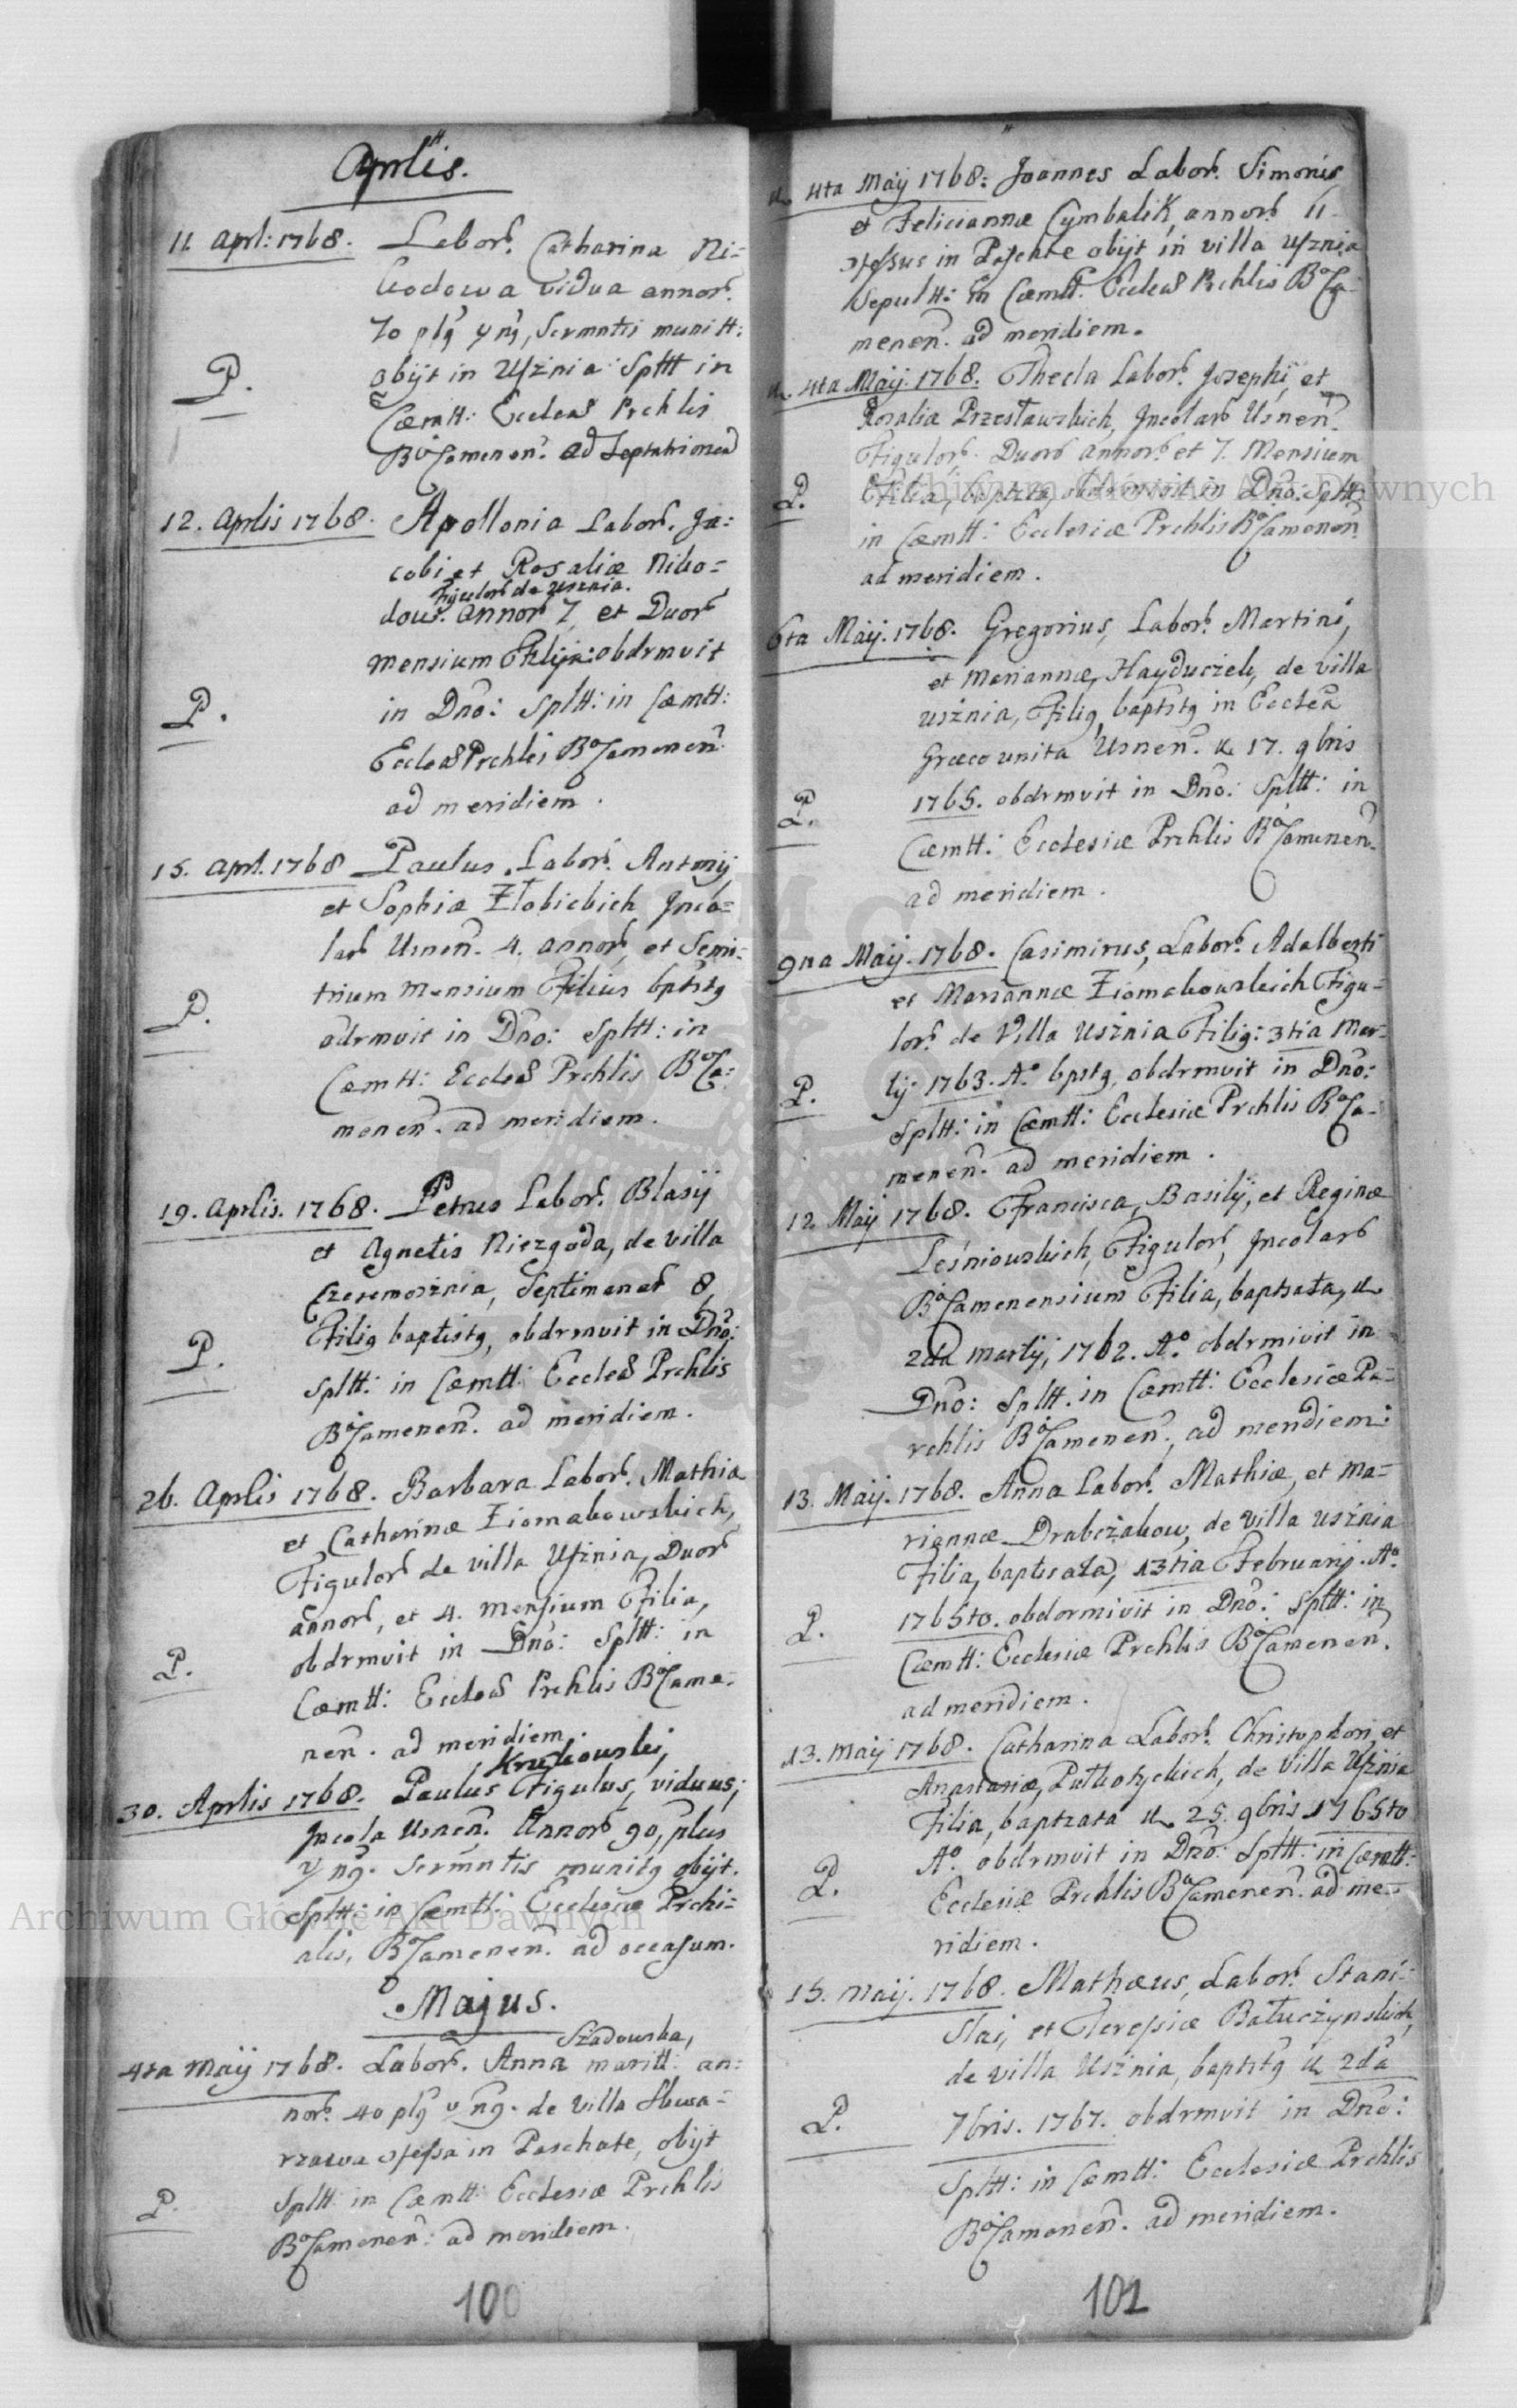 Aprlis.
11 Aprl: 1768. Labor. Catharina Ni=
kodowa vidua annor.
70 plg yng, Scrmntis munitt:
obijt in Usznia Spltt in
Cæmtt: Eccleæ Prchlis
BoCamenen. ad Septatrionem
P.
12. Aprlis 1768. Apollonia Labor. Ja:
cobi et Rosaliæ Niko=
Figulor de Usznia.
dow. annor 7, et Duor
mensium Filia: obdrmvit
in Dno: Spltt: in Cæmtt:
P.
Eccleæ Prchlis BoCamenen.
ad meridiem.
15. Aprl. 1768 Paulus, Labor. Antonij
et Sophiæ Złobickich Inco=
lar Usnen. 4. annor, et Semi=
trium Mensium Filius bptstg
P.
odrmvit in Dno: Spltt: in
Cæmtt: Eccleæ Prchlis BoCa:
menen. ad meridiem.
19. Aprlis. 1768. Petrus Labor. Blasij
et Agnetis Niezgoda, de villa
Czeremosznia, Septimanar 8,
Filig baptistg, obdrmvit in Dno:
P.
Spltt: in Cæmtt: Eccleæ Prchlis
BoCamenen. ad meridiem.
26. Aprlis 1768. Barbara Labor. Mathiæ
et Catharinæ Ziomakowskich,
Figulor de villa Usznia, Duor
annor, et 4. Mensium Filia,
obdrmvit in Dno: Spltt: in
P.
Cæmtt: Eccleæ Prchlis BoCame=
nen. ad meridiem.
Krukowski,
30. Aprlis 1768. Paulus Figulus, viduus;
Incola Usnen. Annor 90, plus
yng. Scrmntis munitg obijt.
Spltt: in Cæmtt: Ecclesiæ Prchi=
alis, BoCamenen. ad occasum.
Majus.
Szadowska,
4ta Maij 1768. Labor. Anna maritt: an=
nor. 40 plg yng. de villa Skwa=
rzawa cfessa in Paschate, obijt
P.
Spltt: in Cæmtt: Ecclesiæ Prchlis
BoCamenen: ad meridiem.
100
4ta Maij 1768: Joannes Labor. Simonis,
et Feliciannæ Cymbalik, annor. 11
cfessus in Paschate obijt in villa Usznia
Sepultt: in Cæmtt: Eccleæ Prchlis BoCa=
menen. ad meridiem.
4ta Maij. 1768. Thecla Labor. Josephi, et
Rosaliæ Przesławskich, Incolar Usnen.
Figulor. Duor annor. et 7. Mensium
Filia, baptzta, obdrmvit in Dno: Spltt:
P.
in Cæmtt: Ecclesiæ Prchlis BoCamenen.
ad meridiem.
6ta Maij. 1768. Gregorius, Labor. Martini,
et Mariannæ, Hayduczek, de villa
Usznia, Filig, baptstg in Ecclea
Græco unita Usnen. 17. 9bris
P.
1765. obdrmvit in Dno: Spltt: in
Cæmtt: Ecclesiæ Prchlis BoCamenen.
ad meridiem.
9na Maij. 1768. Casimirus, Labor. Adalberti
et Mariannæ Ziomakowskich Figu=
lor. de Villa Usznia Filig: 3tia Mar=
tij 1763. Ao. bpstg, obdrmvit in Dno:
P.
Spltt: in Cæmtt: Ecclesiæ Prchlis BoCa=
menen. ad meridiem.
12. Maij 1768. Francisca, Basilij, et Reginæ
Leśniowskich, Figulor, Incolar
BoCamenensium Filia, baptzata,
2da Martij, 1762. Ao. obdrmivit in
Dno: Spltt. in Cæmtt: Ecclesiæ Pa=
rchlis BoCamenen., ad meridiem.
13. Maij. 1768. Anna Labor. Mathiæ, et Ma=
riannæ Drabczakow, de villa Usznia
Filia, baptisata, 13tia Februarij. Ao.
P.
1765to. obdormivit in Dno: Spltt: in
Cæmtt: Ecclesiæ Prchlis BoCamenen.
ad meridiem.
13. Maij 1768. Catharina Labor. Christophori, et
Anastasiæ, Pułkotyckich, de Villa Usznia
Filia, baptzata 25. 9bris 1765to
Ao. obdrmvit in Dno: Spltt: in Cæmtt:
P.
Ecclesiæ Prchlis BoCamenen. ad me=
ridiem.
15. Maij. 1768. Mathæus, Labor. Stani=
slai, et Theresiæ Bałuczynskich,
de villa Usznia, baptstg 2da
P.
7bris. 1767. obdrmvit in Dno:
Spltt: in Cæmtt: Ecclesiæ Prchlis
BoCamenen. ad meridiem.
101
Archiwum Główne Akt Dawnych
Archiwum Główne Akt Dawnych